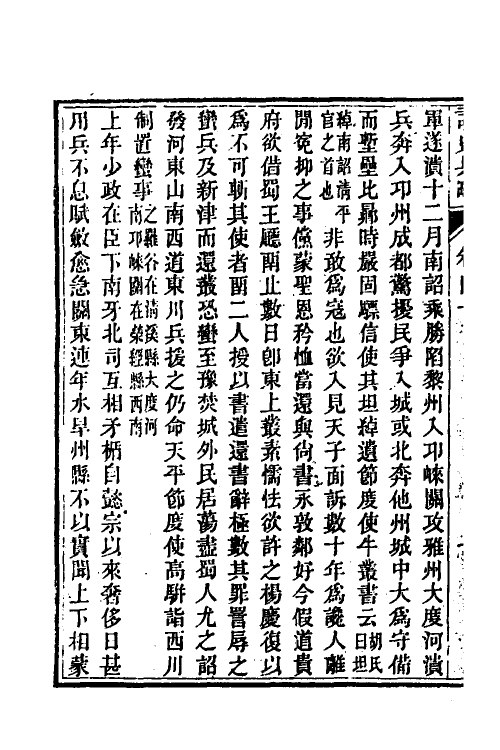 軍遂潰十二月南詔乘勝陷黎州入邛崍關攻雅州大度河潰
兵奔入邛州成都驚擾民爭入城或北奔他州城中大爲守備
而塹壘比曏時嚴固驃信使其坦綽遺節度使牛叢書云胡氏曰坦
綽南詔清平官之首也非敢爲寇也欲入見天子面訴數十年爲讒人離
間寃抑之事儻蒙聖恩矜恤當還與尚書永敦鄰好今假道貴
府欲借蜀王廳畱止數日卽東上叢素懦怯欲許之楊慶復以
爲不可斬其使者畱二人授以書遣還書辭極數其罪詈辱之
蠻兵及新津而還叢恐蠻至豫焚城外民居蕩盡蜀人尤之詔
發河東山南西道東川兵援之仍命天平節度使高駢詣西川
制置蠻事之羅谷在清溪縣大度河南邛崍關在榮經縣西南
上年少政在臣下南牙北司互相矛楯自懿宗以來奢侈日甚
用兵不息賦斂愈急關東連年水旱州縣不以實聞上下相蒙